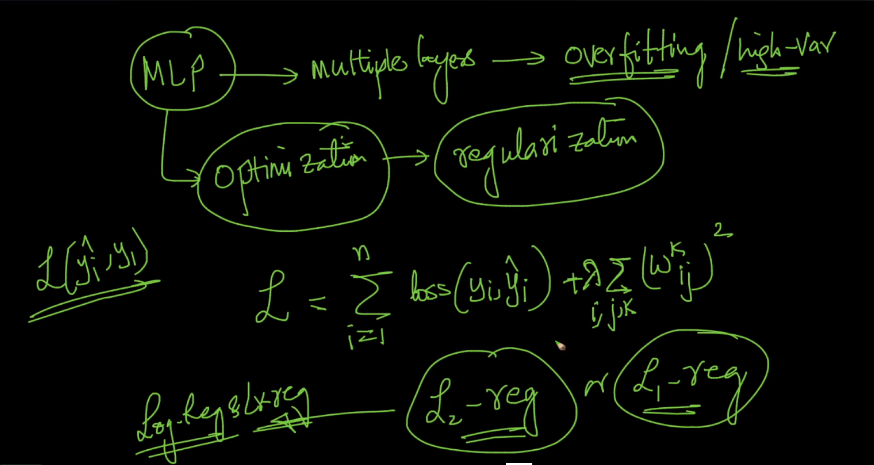 MLP → multiple layers → overfitting / high-var
optimization → regularization
L(ŷᵢ, yᵢ)
L = Σⁿᵢ₌₁ loss(yᵢ, ŷᵢ) + λ Σ_{i,j,k} (wᵏᵢⱼ)²
Log-Reg & L2-reg ← L₂-reg or L₁-reg